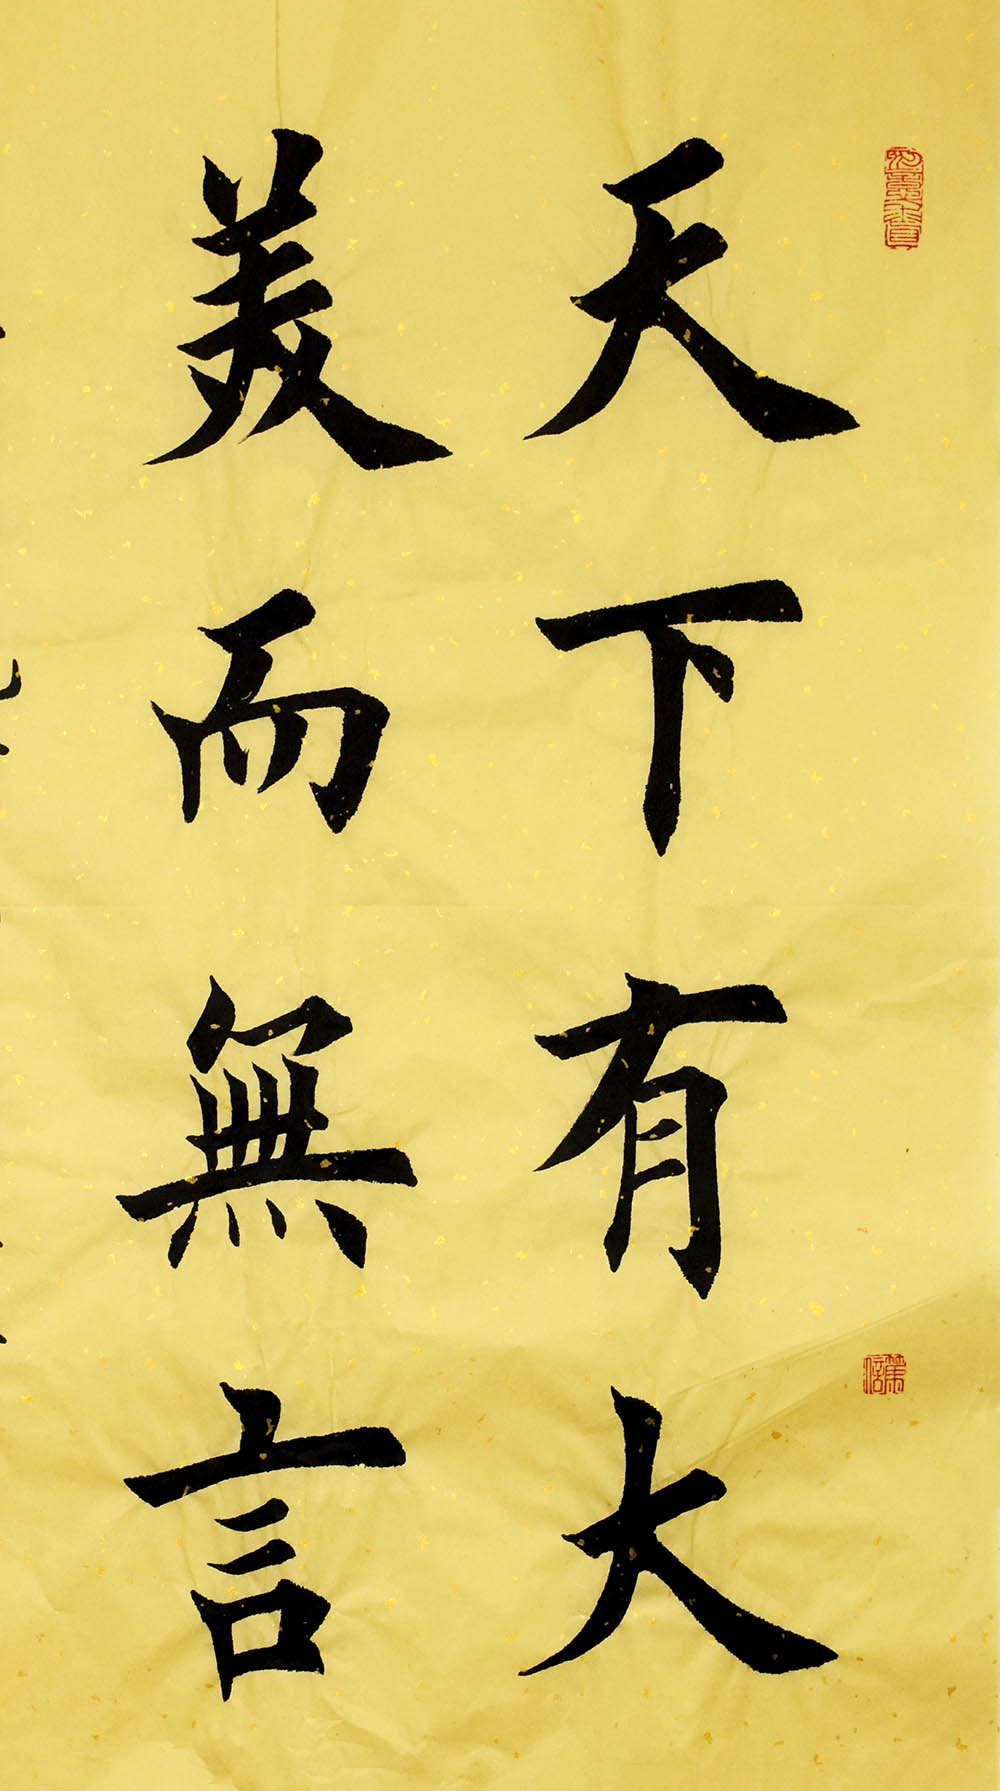 天下有大
美而無言